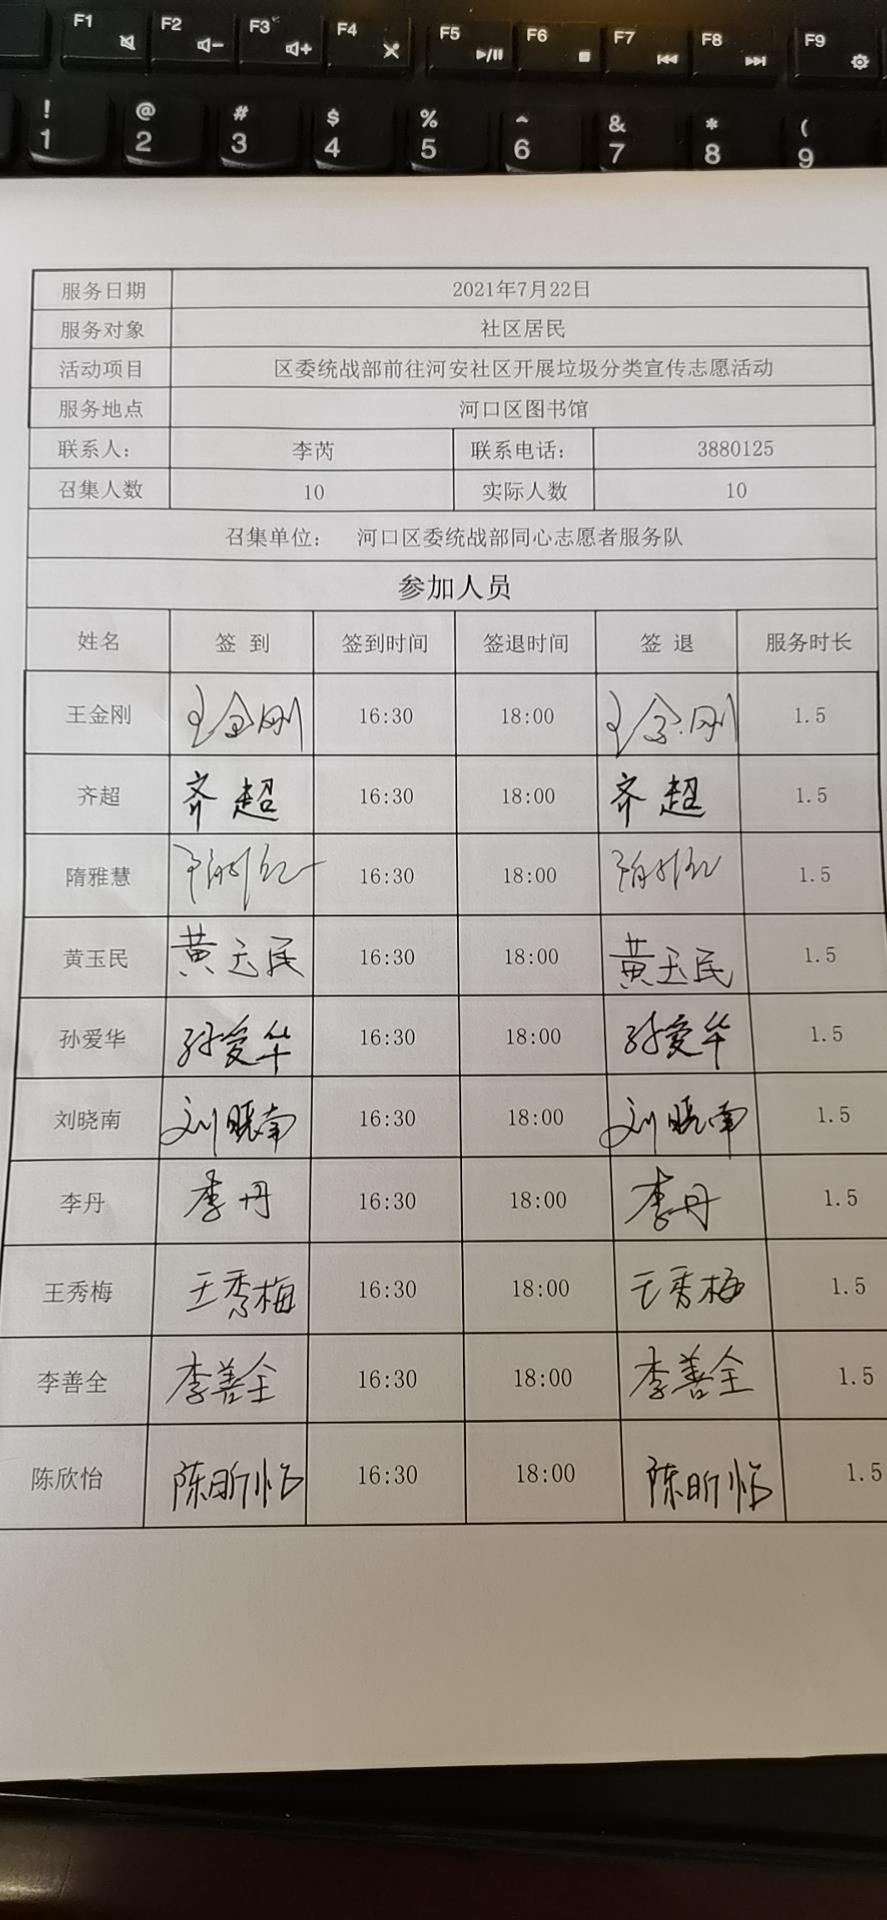 F1 F2 F3 F4 F5 F6 F7 F8 F9
! @ # $ % ^ & * (
1 2 3 4 5 6 7 8 9
服务日期 2021年7月22日
服务对象 社区居民
活动项目 区委统战部前往河安社区开展垃圾分类宣传志愿活动
服务地点 河口区图书馆
联系人： 李芮 联系电话： 3880125
召集人数 10 实际人数 10
召集单位： 河口区委统战部同心志愿者服务队
参加人员
姓名 签 到 签到时间 签退时间 签 退 服务时长
王金刚 王金刚 16:30 18:00 王金刚 1.5
齐超 齐超 16:30 18:00 齐超 1.5
隋雅慧 16:30 18:00 1.5
黄玉民 黄玉民 16:30 18:00 黄玉民 1.5
孙爱华 孙爱华 16:30 18:00 孙爱华 1.5
刘晓南 刘晓南 16:30 18:00 刘晓南 1.5
李丹 李丹 16:30 18:00 李丹 1.5
王秀梅 王秀梅 16:30 18:00 王秀梅 1.5
李善全 李善全 16:30 18:00 李善全 1.5
陈欣怡 陈昕怡 16:30 18:00 陈昕怡 1.5